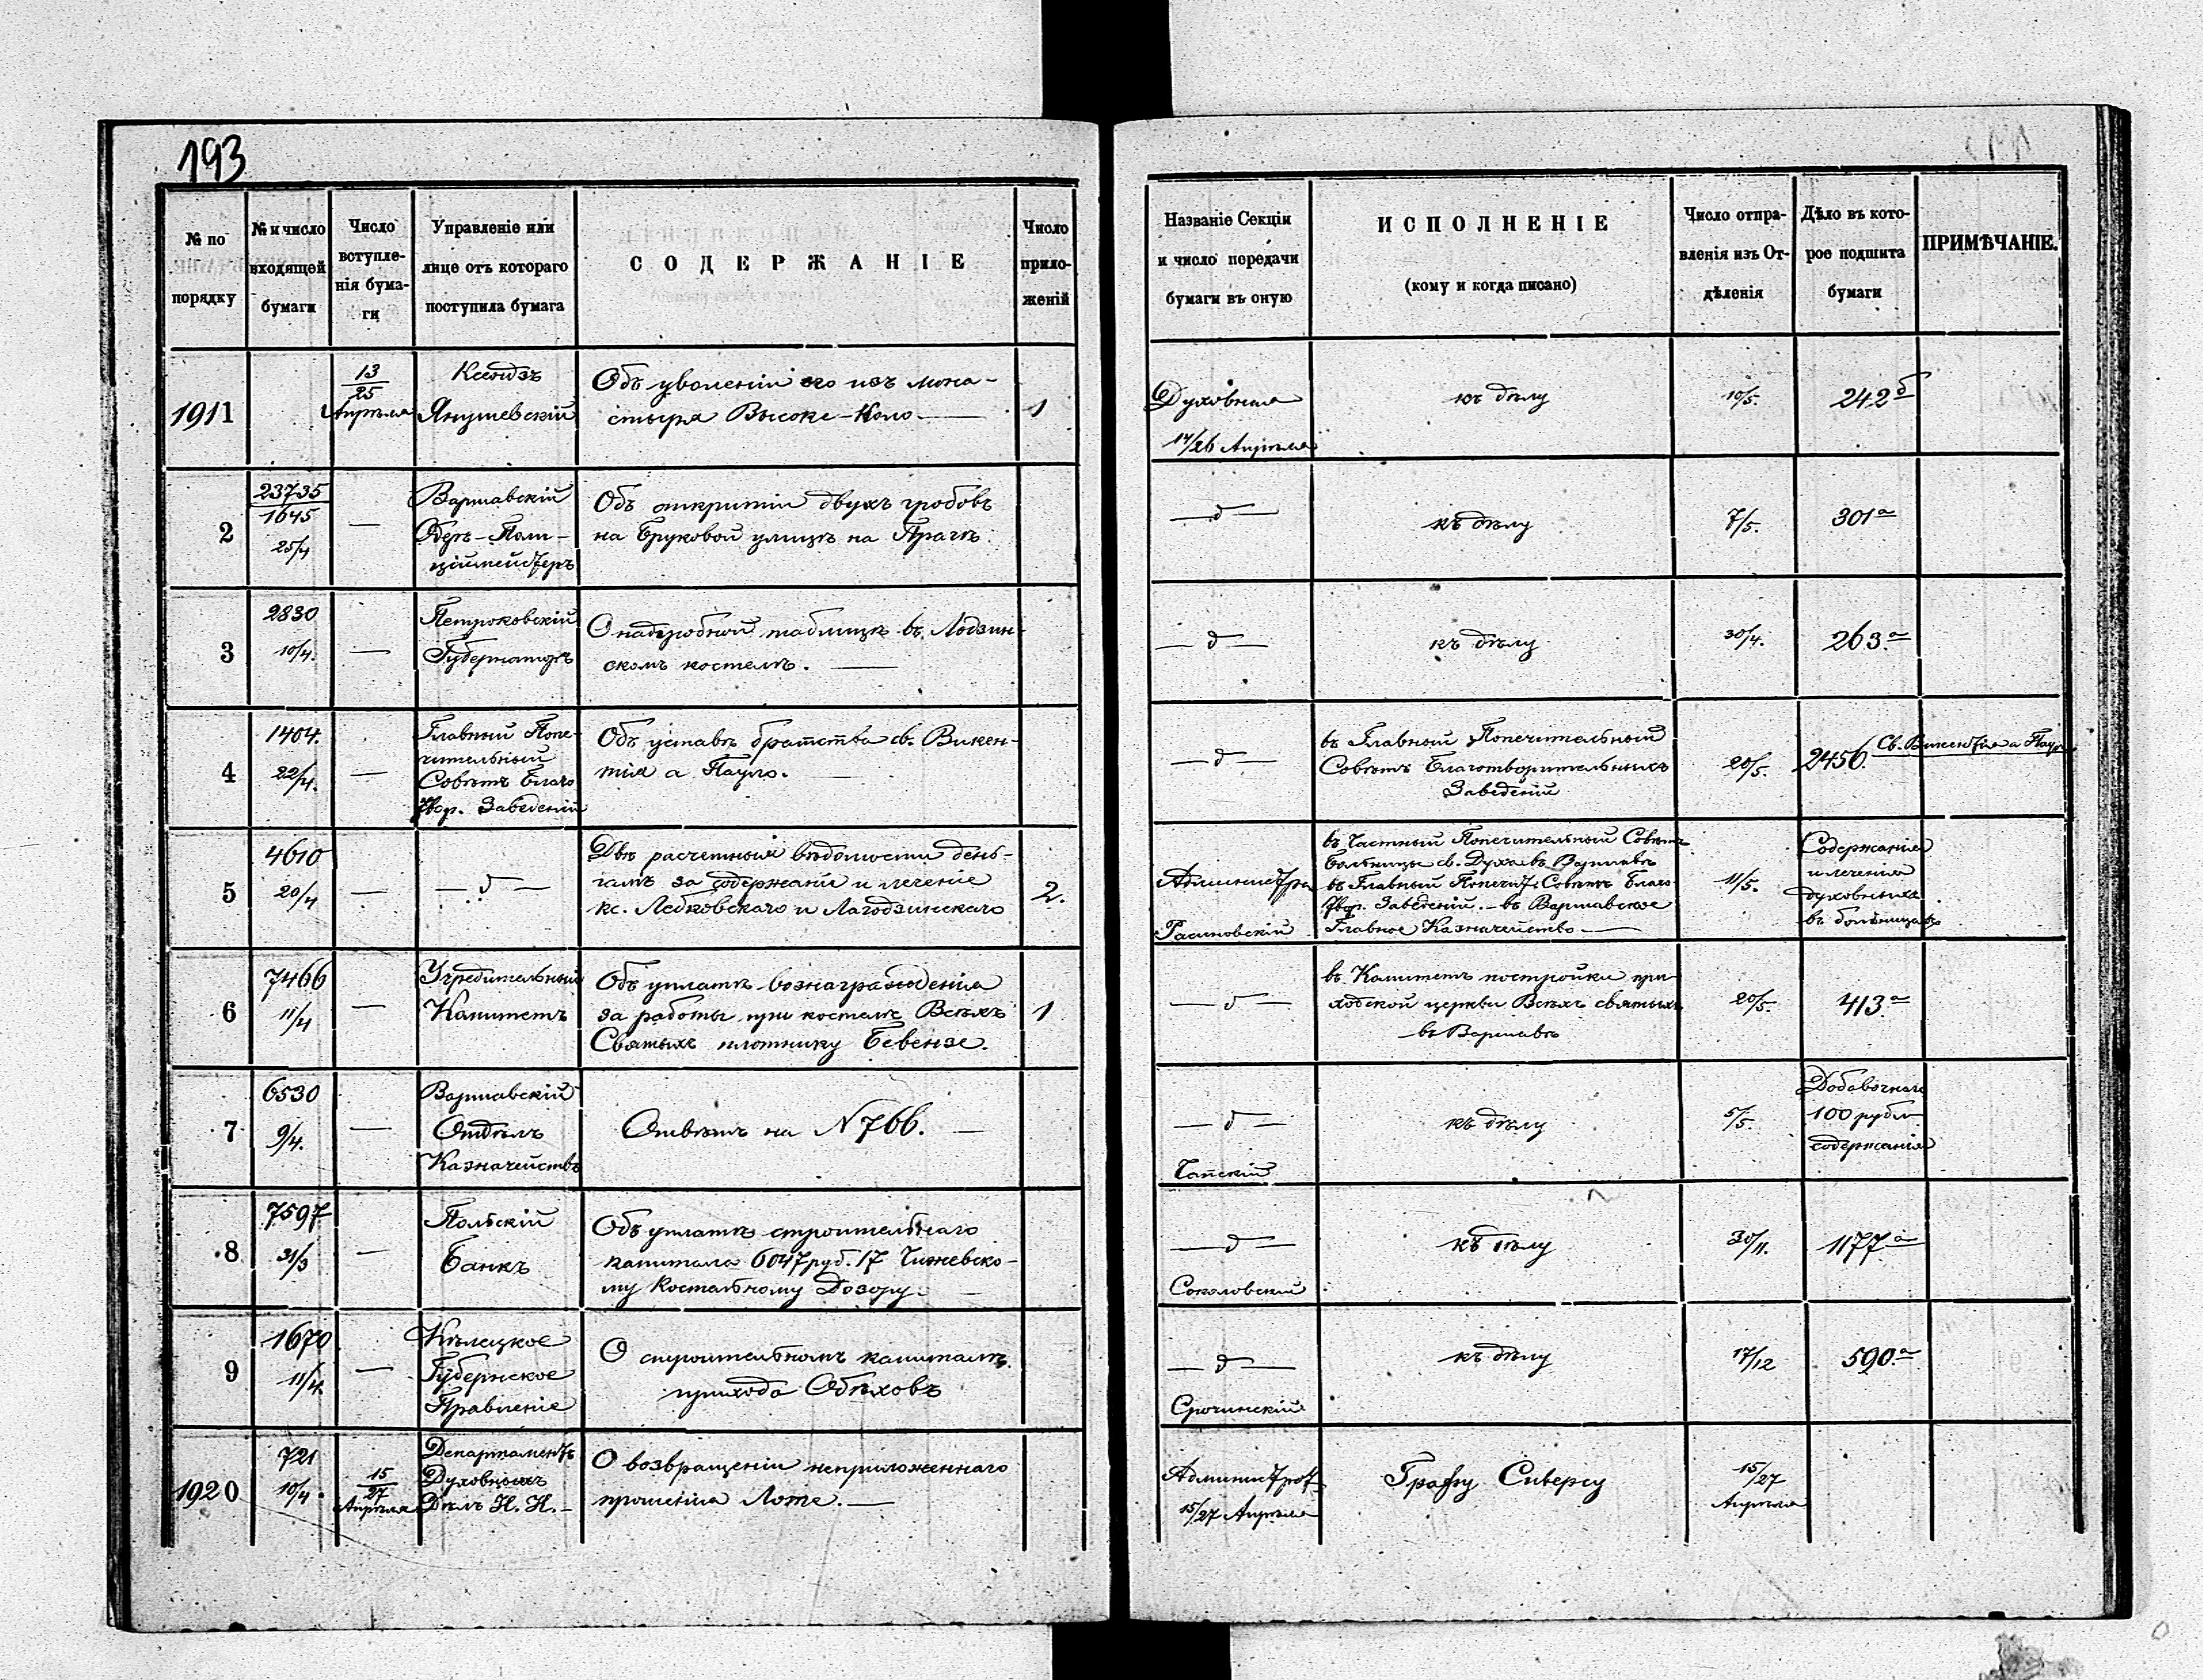 193
№ по порядку
№ и число входящей бумаги
Число вступле-нія бума-ги
Управленіе или лице отъ котораго поступила бумага
СОДЕРЖАНІЕ
Число прило-женій
Названіе Секціи и число передачи бумаги въ оную
ИСПОЛНЕНІЕ
(кому и когда писано)
Число отпра-вленія изъ От-дѣленія
Дѣло въ кото-рое подшита бумаги
ПРИМѢЧАНІЕ.
1911
13/25 Апрѣля
Ксендзъ
Янушевскій
Объ уволеніи его изъ мона-
стыря Высоке-Коло
1
Духовная
14/26 Апрѣля
къ дѣлу
10/5.
242б
2
23735/1645
25/4
—
Варшавскій
Оберъ-Поли-
ціймейстеръ
Объ открытіи двухъ гробовъ
на Бруковой улицѣ на Прагѣ.
— д —
къ дѣлу
7/5.
301а
3
2830
10/4.
—
Петроковскій
Губернаторъ
О надгробной таблицѣ въ Лодзин-
скомъ костелѣ.
— д —
къ дѣлу
30/4.
263.а
4
1404.
22/4.
—
Главный Попе-
чительный
Совѣтъ Благо
твор. Заведеній
Объ уставѣ братства св. Викен-
тія а Пауло.
— д —
въ Главный Попечительный
Совѣтъ Благотворительныхъ
Заведеній
20/5.
2456.
Св. Викентія а Паул
5
4610
20/4
—
— д —
Двѣ расчетныя вѣдомости день-
гамъ за содержаніе и леченіе
кс. Ледковскаго и Лагодзинскаго
2.
Админист
въ Частный Попечительный Совѣтъ
Больницы св. Духа въ Варшавѣ
въ Главный Попечит. Совѣтъ Благо
твор. Заведеній. – въ Варшавское
Главное Казначейство
11/5.
Содержаніе
и леченія
духовныхъ
въ больницахъ
6
7466
11/4
—
Учредительный
Комитетъ
Объ уплатѣ вознагражденія
за работы при костелѣ Всѣхъ
Святыхъ плотнику Бевензе.
1
— д —
въ Комитетъ постройки при-
ходской церкви Всѣхъ святыхъ
въ Варшавѣ
20/5.
413.а
7
6530
9/4.
—
Варшавскій
Отдѣлъ
Казначействъ
Отвѣтъ на N 766.
— д —
Чапскій
къ дѣлу
5/5.
Добавочнаго
100 рубл
содержанія
8
7597
31/3
—
Польскій
Банкъ
Объ уплатѣ строительнаго
капитала 6047 руб. 17 Чижевско-
му Костельному Дозору.
— д —
Соколовскій
къ дѣлу
30/11.
1177а
9
1670
11/4.
—
Кѣлецкое
Губернское
Правленіе
О строительномъ капиталѣ
прихода Обѣховъ
— д —
Срочинскій
къ дѣлу
17/12
590.а
1920
721
10/4.
15/27 Апрѣля
Департаментъ
Духовныхъ
Дѣлъ И. И.
О возвращеніи неприложеннаго
прошенія Лоте.
Администрат
15/27 Апрѣля
Графу Сиверсу
15/27
Апрѣля